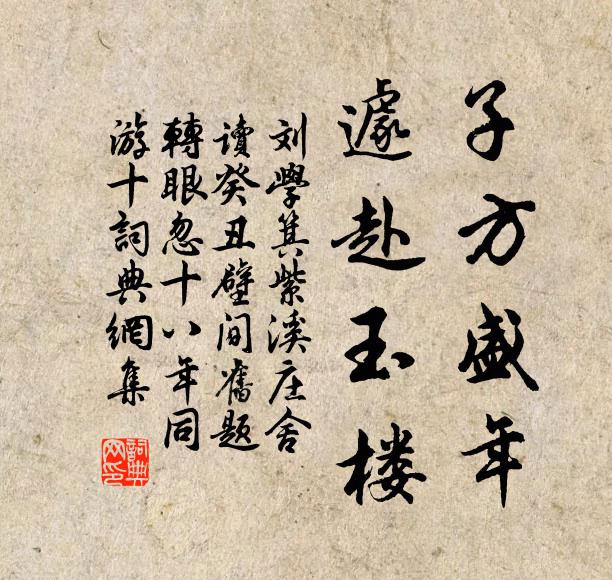 子方盛年
遽赴玉楼
刘學箕紫溪庄舍
讀癸丑壁间舊题
轉眼忽十八年同
游十詞典網集
詞典
网印